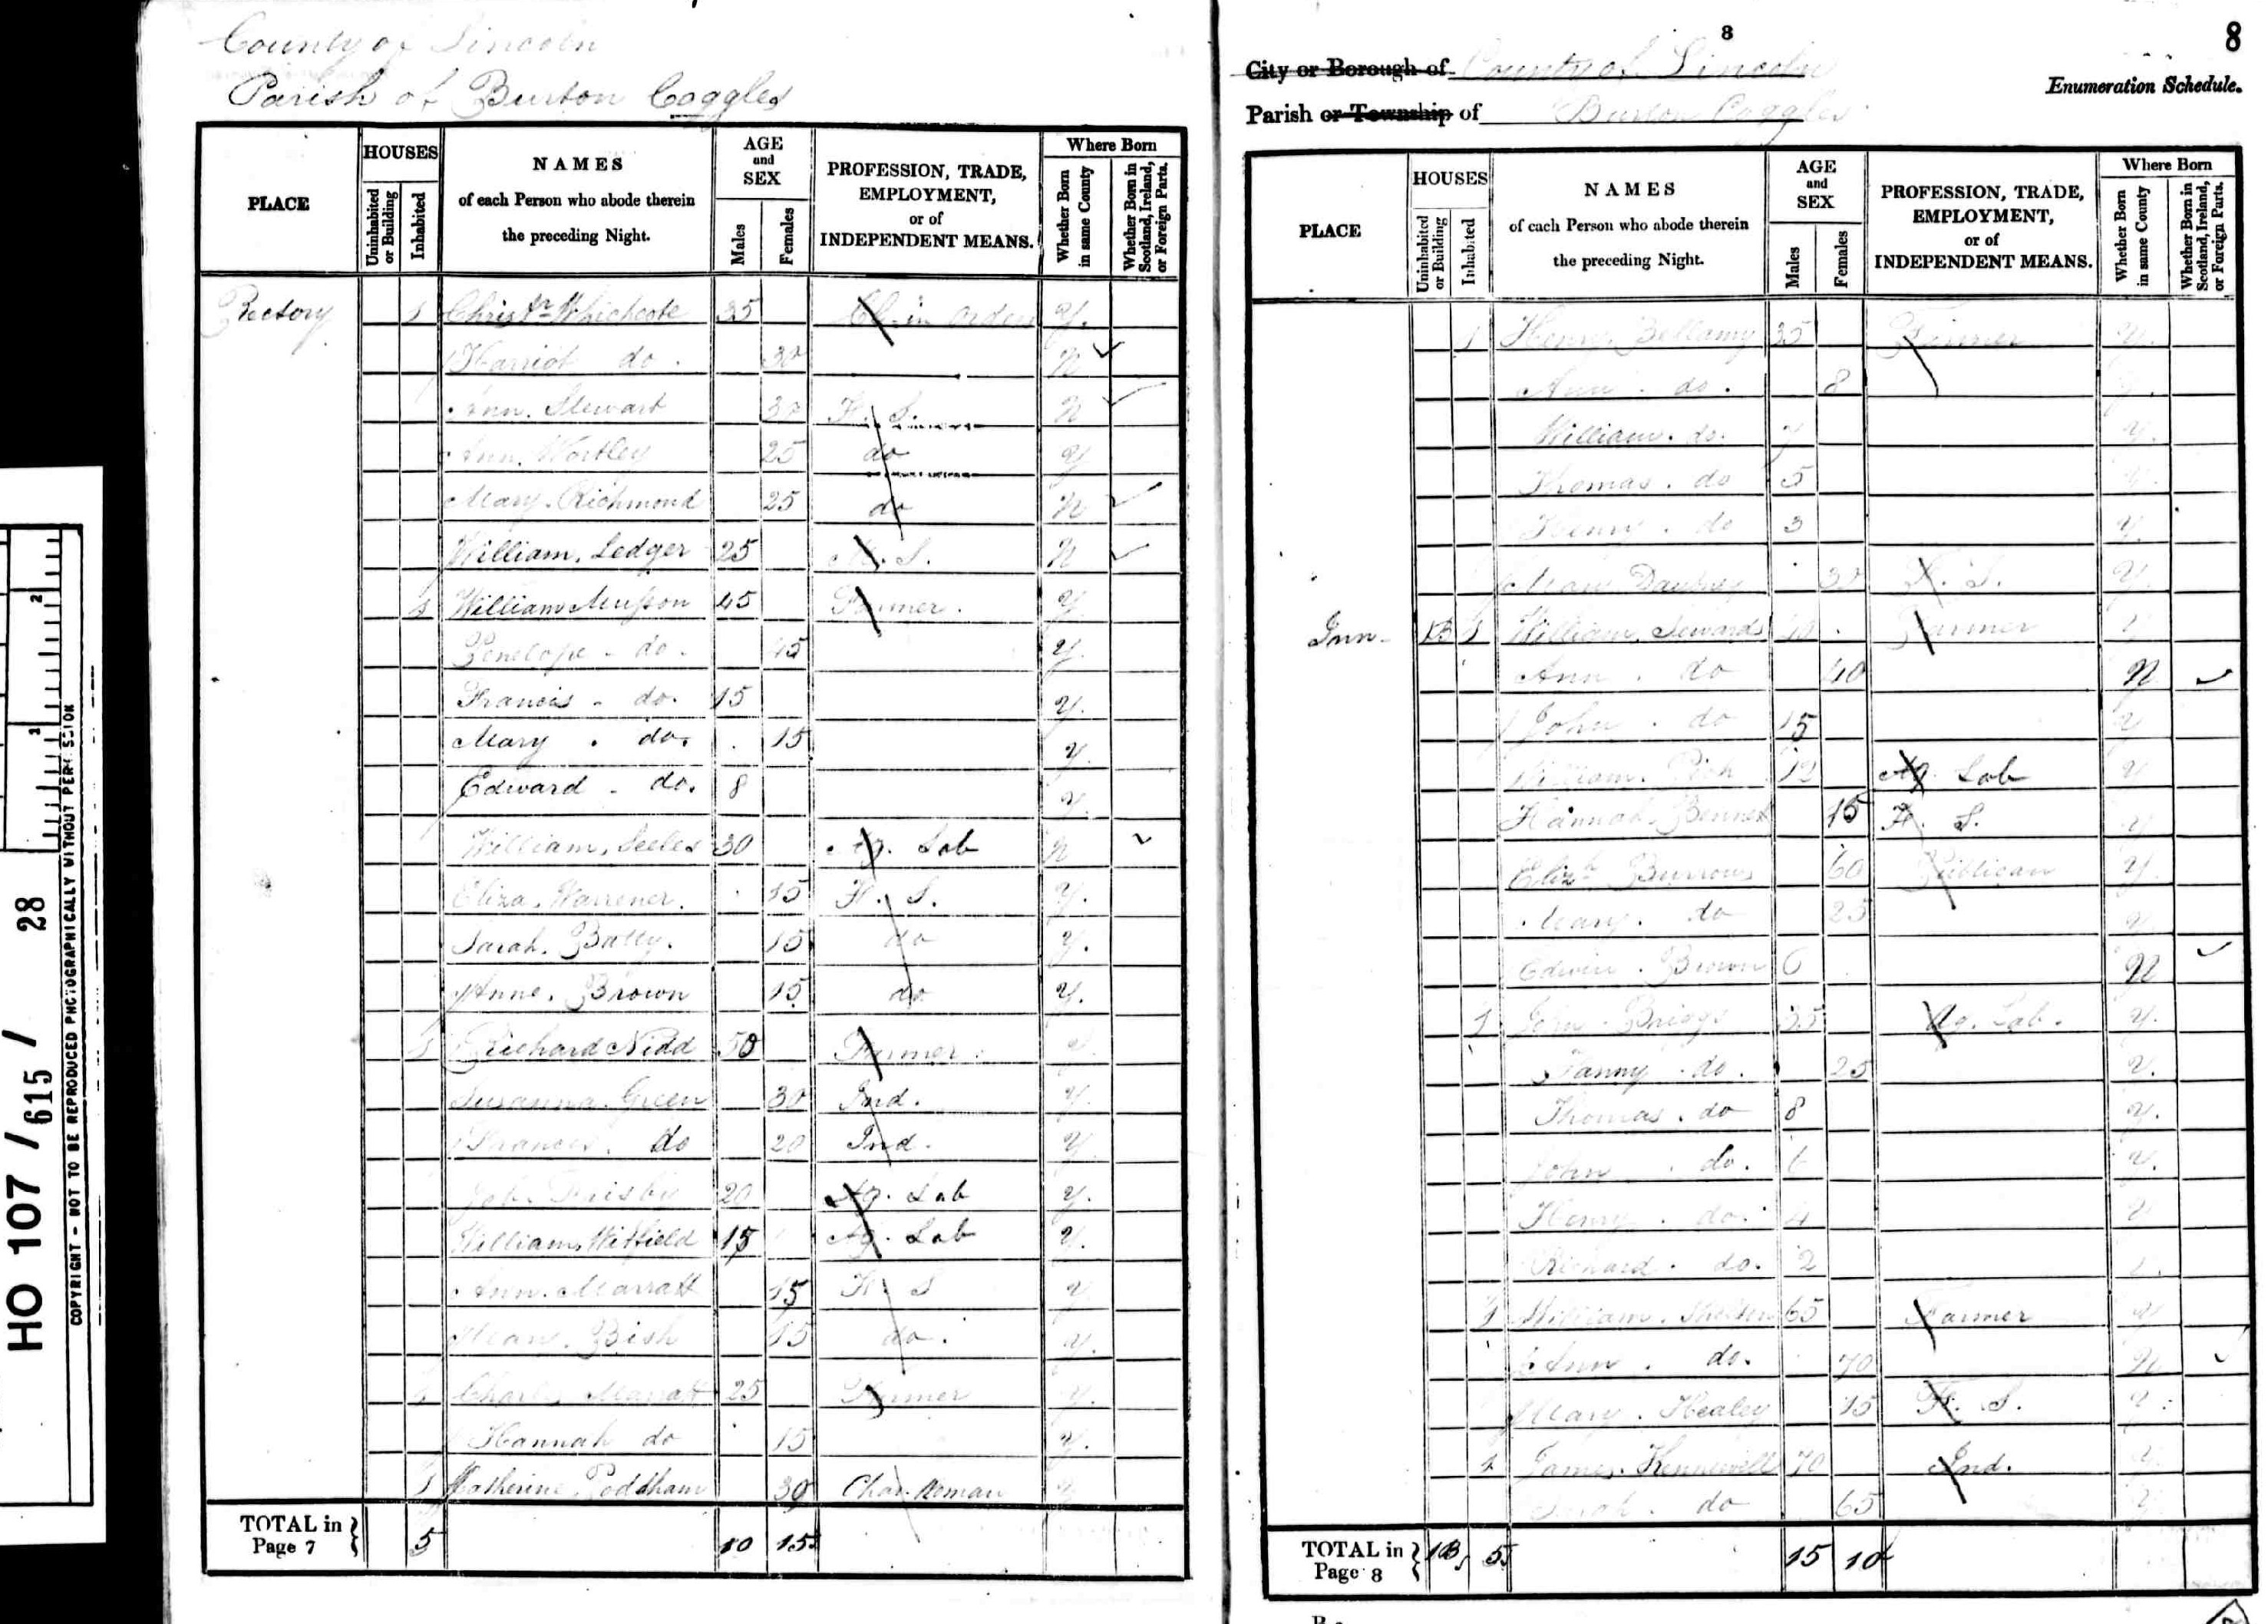 County of Lincoln
Parish of Burton Coggles
PLACE
HOUSES
Uninhabited or Building
Inhabited
NAMES
of each Person who abode therein
the preceding Night.
AGE and SEX
Males
Females
PROFESSION, TRADE, EMPLOYMENT, or of INDEPENDENT MEANS.
Where Born
Whether Born in same County
Whether Born in Scotland, Ireland, or Foreign Parts.
Rectory 1 Christr Whichcote 35 Cl. in Orders Y.
Harriot do. 30 N
Ann. Stewart 30 F. S. N
Ann. Wortley 25 do Y
Mary. Richmond 25 do N
William. Ledger 25 M. S. N
1 William Musson 45 Farmer. Y
Penelope - do. 45 Y.
Francis - do. 15 Y.
Mary . do. 15 Y.
Edward - do. 8 Y.
William. Seeles 30 Ag. Lab N
Eliza. Warrener. 15 F. S. Y.
Sarah. Batty. 15 do Y.
Anne. Brown 15 do Y.
1 Richard Nidd 50 Farmer
Susanna. Green 30 Ind. Y.
Frances. do 20 Ind. Y
Frisby 20 Ag. Lab Y.
William. Witfield 15 Ag. Lab Y.
Ann. Marratt 15 F. S Y
Mary. Bish 15 do. Y.
1 Charles Marratt 25 Farmer Y.
Hannah do 15 Y.
1 Katherine. Poddham 30 Char Woman Y
TOTAL in Page 7 5 10 15
8
8
City or Borough of County of Lincoln
Enumeration Schedule.
Parish or Township of Burton Coggles
PLACE
HOUSES
Uninhabited or Building
Inhabited
NAMES
of each Person who abode therein
the preceding Night.
AGE and SEX
Males
Females
PROFESSION, TRADE, EMPLOYMENT, or of INDEPENDENT MEANS.
Where Born
Whether Born in same County
Whether Born in Scotland, Ireland, or Foreign Parts.
1 Henry. Bellamy 35 Farmer Y.
Ann. do. 8
William. do. 7 Y.
Thomas. do 5 Y.
Henry. do 3 Y.
Mary Daubney 30 F. S. Y.
Inn - 1B 1 William. Sewards Farmer Y
Ann. do 40 N
John. do 15 Y
William. 12 Ag. Lab Y
Hannah. Bennet 15 F. S. Y
Elizth Burrows 60 Publican Y.
Mary. do 25 Y
Edwin. Brown 6 N
1 John. Briggs 35 Ag. Lab. Y.
Fanny. do. 25 Y.
Thomas. do 8 Y.
John . do. 6 Y.
Henry. do. 4 Y
Richard. do. 2
1 William. Shelton 65 Farmer Y
Ann . do. 70 N
Mary. Healey 15 F. S. Y
1 James. Kennewell 70 Ind. Y
Sarah. do 65 Y
TOTAL in Page 8 1B 5 15 10
HO 107 / 615 / 28
COPYRIGHT - NOT TO BE REPRODUCED PHOTOGRAPHICALLY WITHOUT PERMISSION
1
2